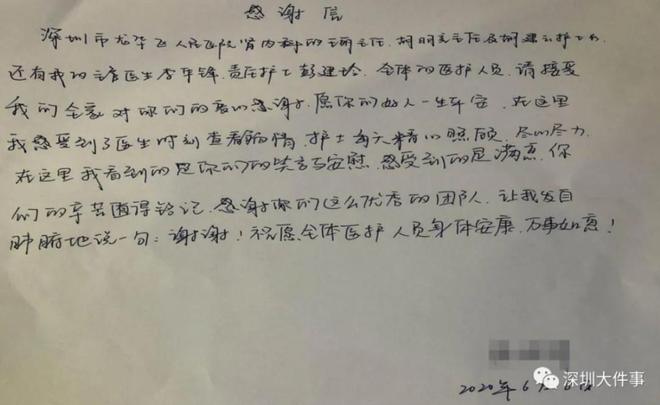 感谢信
深圳市龙华区人民医院肾内科的王丽主任、胡明亮主任及胡建云护士长
还有我的主管医生李年锋、责任护士彭建玲、全体的医护人员，请接受
我们全家对你们的衷心感谢，愿你们好人一生平安，在这里
我感受到了医生时刻查看病情，护士每天精心照顾，尽心尽力，
在这里我看到的是你们的笑言与安慰，感受到的是满意，你
们的辛苦值得铭记，感谢你们这么优秀的团队，让我发自
肺腑地说一句：谢谢！祝愿全体医护人员身体安康，万事如意！
2020年6月6日
深圳大件事